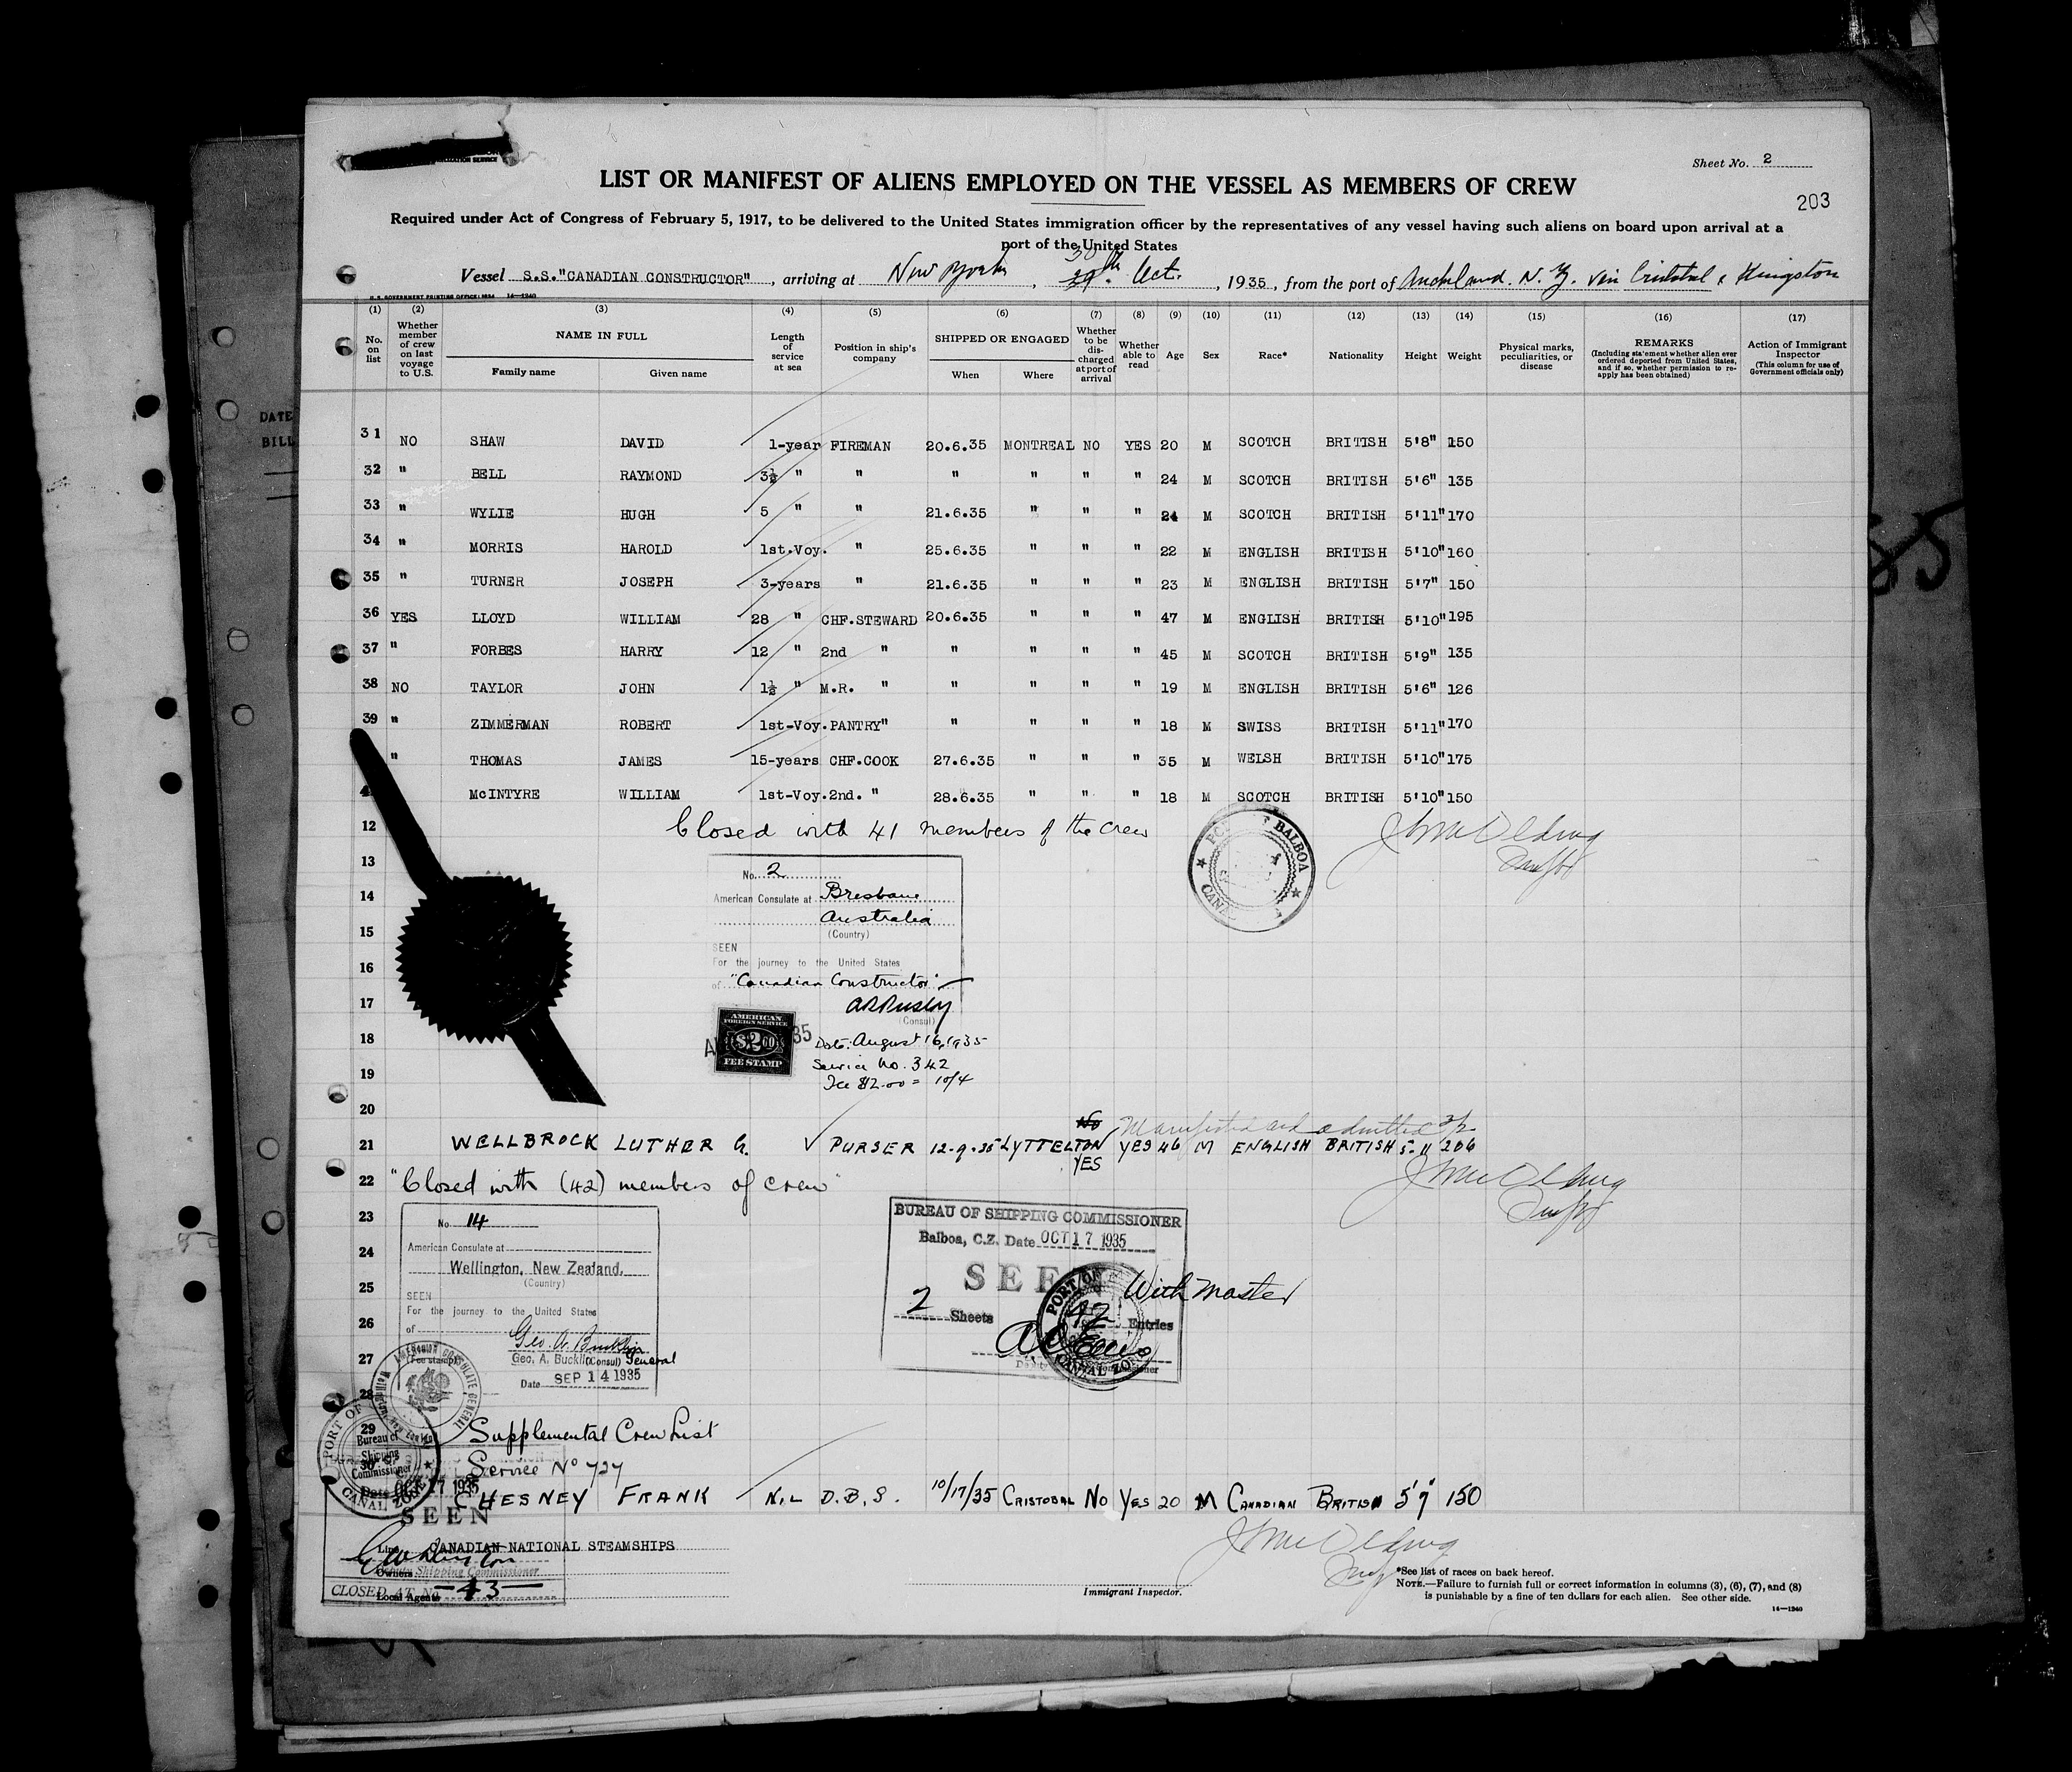 Sheet No. 2
LIST OR MANIFEST OF ALIENS EMPLOYED ON THE VESSEL AS MEMBERS OF CREW
203
Required under Act of Congress of February 5, 1917, to be delivered to the United States immigration officer by the representatives of any vessel having such aliens on board upon arrival at a
port of the United States
Vessel S.S."CANADIAN CONSTRUCTOR", arriving at New York, 30th 29th Oct., 1935, from the port of Auckland. N. Z. via Cristobal & Kingston
U. S. GOVERNMENT PRINTING OFFICE: 1934 14—1240
(1) (2) (3) (4) (5) (6) (7) (8) (9) (10) (11) (12) (13) (14) (15) (16) (17)
No. on list
Whether member of crew on last voyage to U.S.
NAME IN FULL
Family name
Given name
Length of service at sea
Position in ship's company
SHIPPED OR ENGAGED
When
Where
Whether to be discharged at port of arrival
Whether able to read
Age
Sex
Race*
Nationality
Height
Weight
Physical marks, peculiarities, or disease
REMARKS
(Including statement whether alien ever ordered deported from United States, and if so, whether permission to reapply has been obtained)
Action of Immigrant Inspector
(This column for use of Government officials only)
31 NO SHAW DAVID 1-year FIREMAN 20.6.35 MONTREAL NO YES 20 M SCOTCH BRITISH 5'8" 150
32 " BELL RAYMOND 3½ " " " " " " 24 M SCOTCH BRITISH 5'6" 135
33 " WYLIE HUGH 5 " " 21.6.35 " " " 24 M SCOTCH BRITISH 5'11" 170
34 " MORRIS HAROLD 1st-Voy. " 25.6.35 " " " 22 M ENGLISH BRITISH 5'10" 160
35 " TURNER JOSEPH 3-years " 21.6.35 " " " 23 M ENGLISH BRITISH 5'7" 150
36 YES LLOYD WILLIAM 28 " CHF.STEWARD 20.6.35 " " " 47 M ENGLISH BRITISH 5'10" 195
37 " FORBES HARRY 12 " 2nd " " " " " 45 M SCOTCH BRITISH 5'9" 135
38 NO TAYLOR JOHN 1½ " M.R. " " " " " 19 M ENGLISH BRITISH 5'6" 126
39 " ZIMMERMAN ROBERT 1st-Voy. PANTRY" " " " " 18 M SWISS BRITISH 5'11" 170
" THOMAS JAMES 15-years CHF.COOK 27.6.35 " " " 35 M WELSH BRITISH 5'10" 175
4 McINTYRE WILLIAM 1st-Voy. 2nd. " 28.6.35 " " " 18 M SCOTCH BRITISH 5'10" 150
12 Closed with 41 members of the crew
BALBOA
13
No. 2
14 American Consulate at Bresbane
Australia
15 (Country)
SEEN
16 For the journey to the United States
of "Canadian Constructor"
17
(Consul)
AMERICAN FOREIGN SERVICE $2.00 FEE STAMP
35
18 Date: August 16, 1935
Service No. 342
19 Fee $2.00 = 10/4
20
NO Manifested and admitted
21 WELLBROCK LUTHER G. PURSER 12-9-35 LYTTELTON YES 46 M ENGLISH BRITISH 5-11 206
YES
22 "Closed with (42) members of crew"
23
No. 14
24 American Consulate at
Wellington, New Zealand.
25 (Country)
SEEN
For the journey to the United States
26 of
Geo. A. Bucklin
27 (Fee stamp) Geo. A. Bucklin (Consul) General
Date SEP 14 1935
AMERICAN CONSULATE GENERAL
BUREAU OF SHIPPING COMMISSIONER
Balboa, C.Z. Date OCT 17 1935
SEEN
2 Sheets 42 Entries
With Master
CANAL ZONE
28
29
30
PORT OF
Bureau of Shipping Commissioner
CANAL ZONE
Date OCT 17 1935
Supplemental Crew List
Service No 727
CHESNEY FRANK NIL D.B.S. 10/17/35 CRISTOBAL NO YES 20 M CANADIAN BRITISH 5'9" 150
SEEN
Line CANADIAN NATIONAL STEAMSHIPS
Owners
Shipping Commissioner
CLOSED AT No. -43-
Local Agents
Immigrant Inspector.
*See list of races on back hereof.
NOTE.—Failure to furnish full or correct information in columns (3), (6), (7), and (8)
is punishable by a fine of ten dollars for each alien. See other side.
14—1240
DATE
BILL